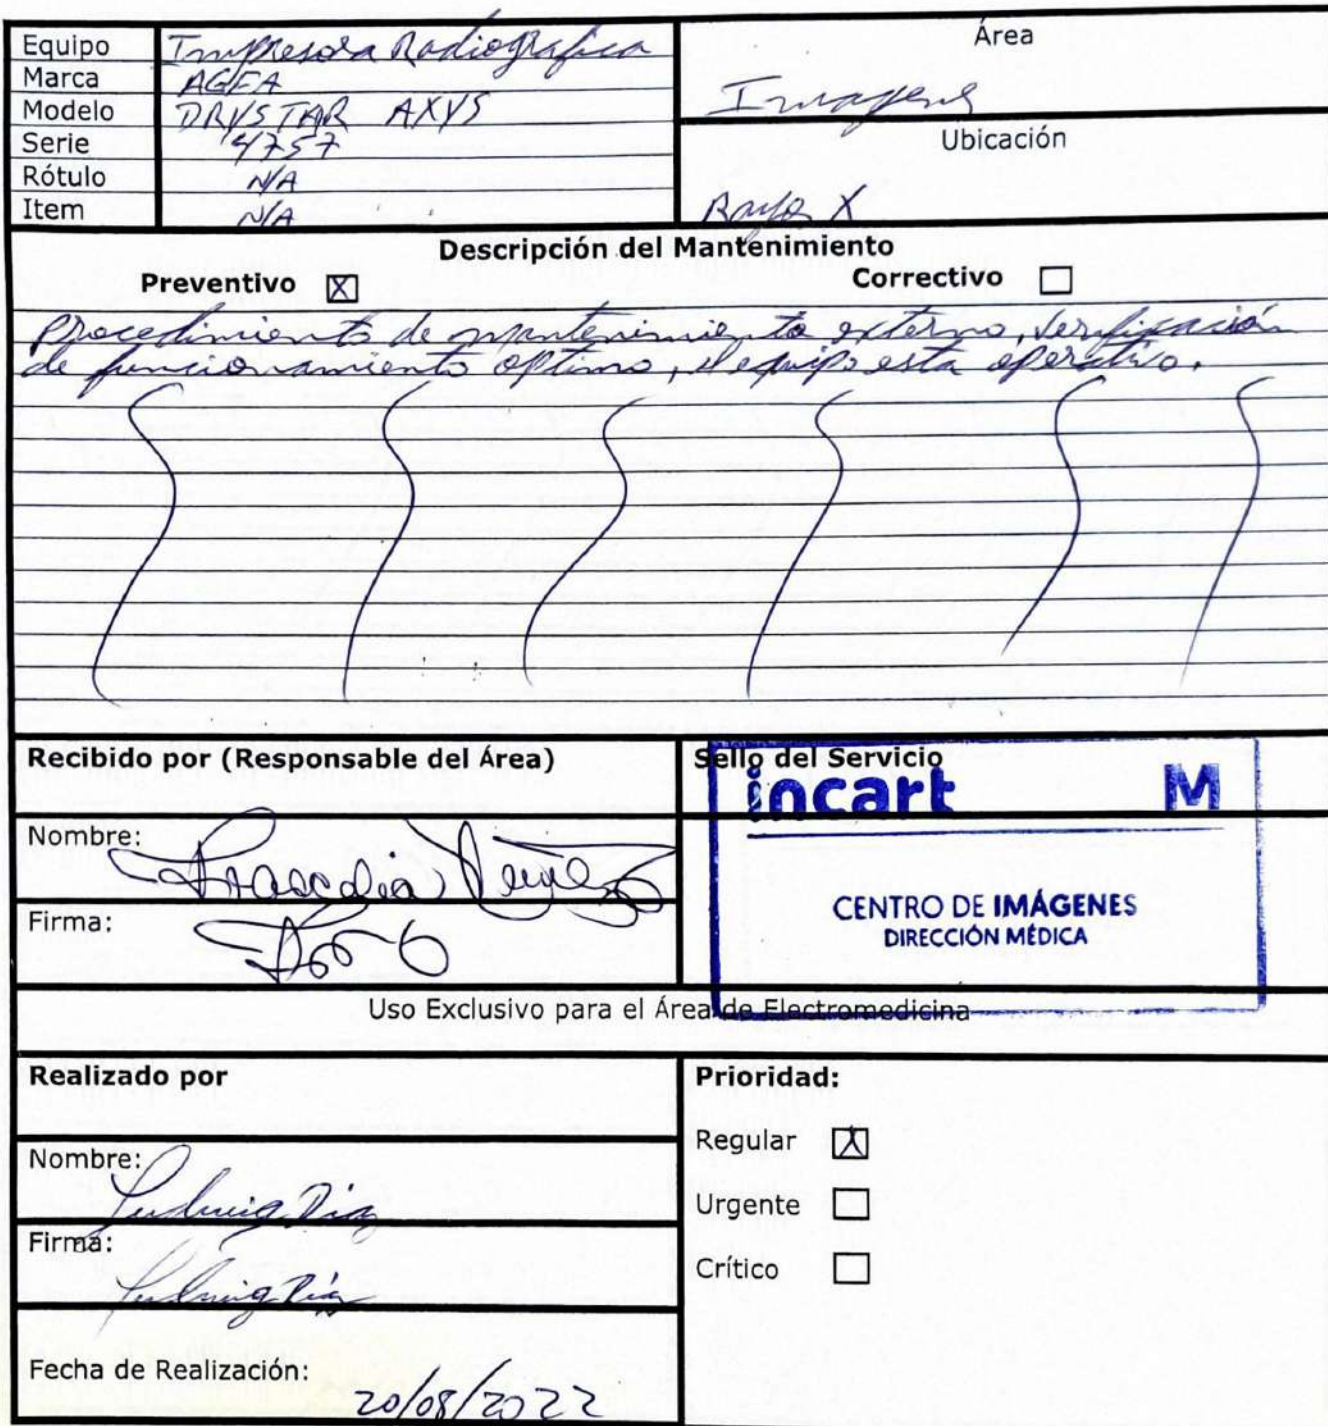 Equipo Impresora Radiografica
Marca AGFA
Modelo DRYSTAR AXYS
Serie 4757
Rótulo N/A
Item N/A
Área
Imagenes
Ubicación
Rayos X
Descripción del Mantenimiento
Preventivo X Correctivo
Procedimiento de mantenimiento externo, verificación
de funcionamiento optimo, el equipo esta operativo.
Recibido por (Responsable del Área)
Nombre:
Firma:
Sello del Servicio
incart M
CENTRO DE IMÁGENES
DIRECCIÓN MÉDICA
Uso Exclusivo para el Área de Electromedicina
Realizado por
Nombre: Ludwig Díaz
Firma: Ludwig Díaz
Fecha de Realización: 20/08/2022
Prioridad:
Regular X
Urgente
Crítico